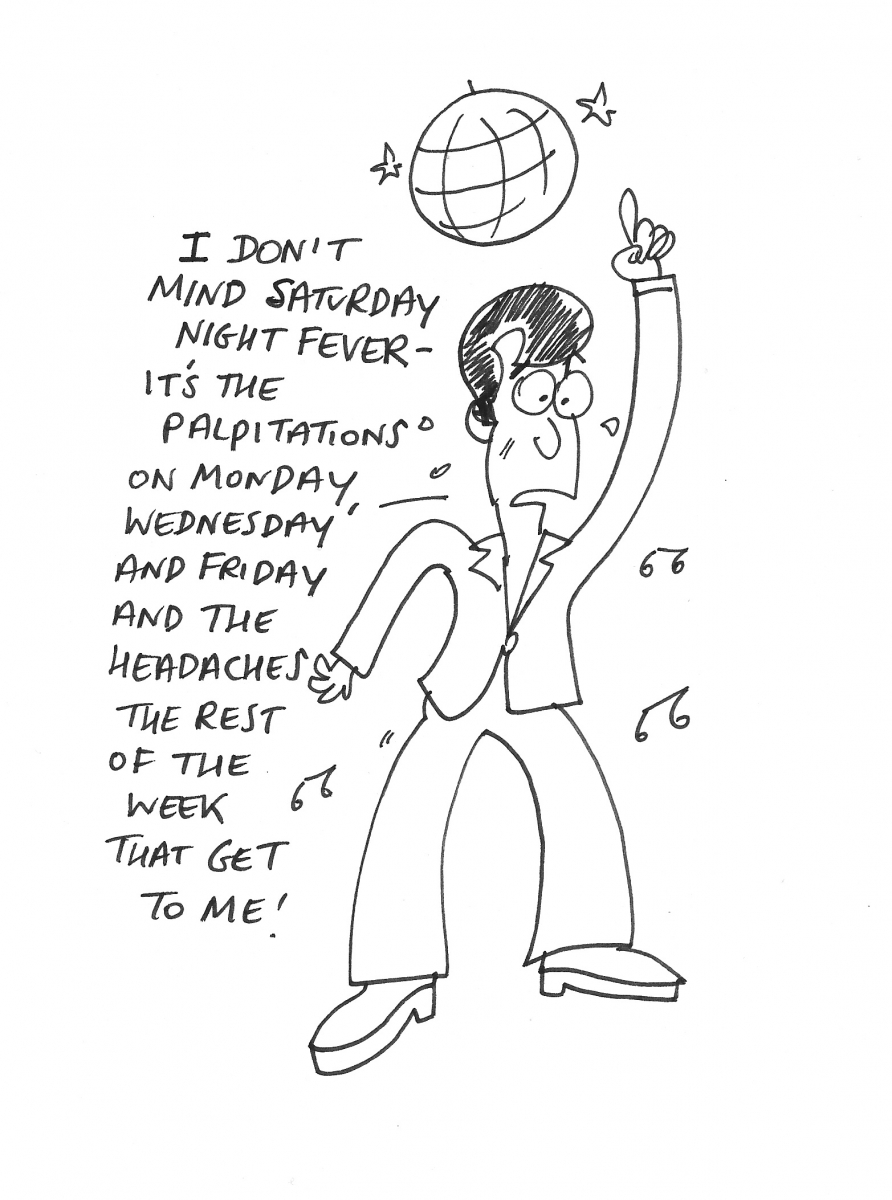 I DON'T
MIND SATURDAY
NIGHT FEVER-
IT'S THE
PALPITATIONS
ON MONDAY
WEDNESDAY
AND FRIDAY
AND THE
HEADACHES
THE REST
OF THE
WEEK
THAT GET
TO ME!